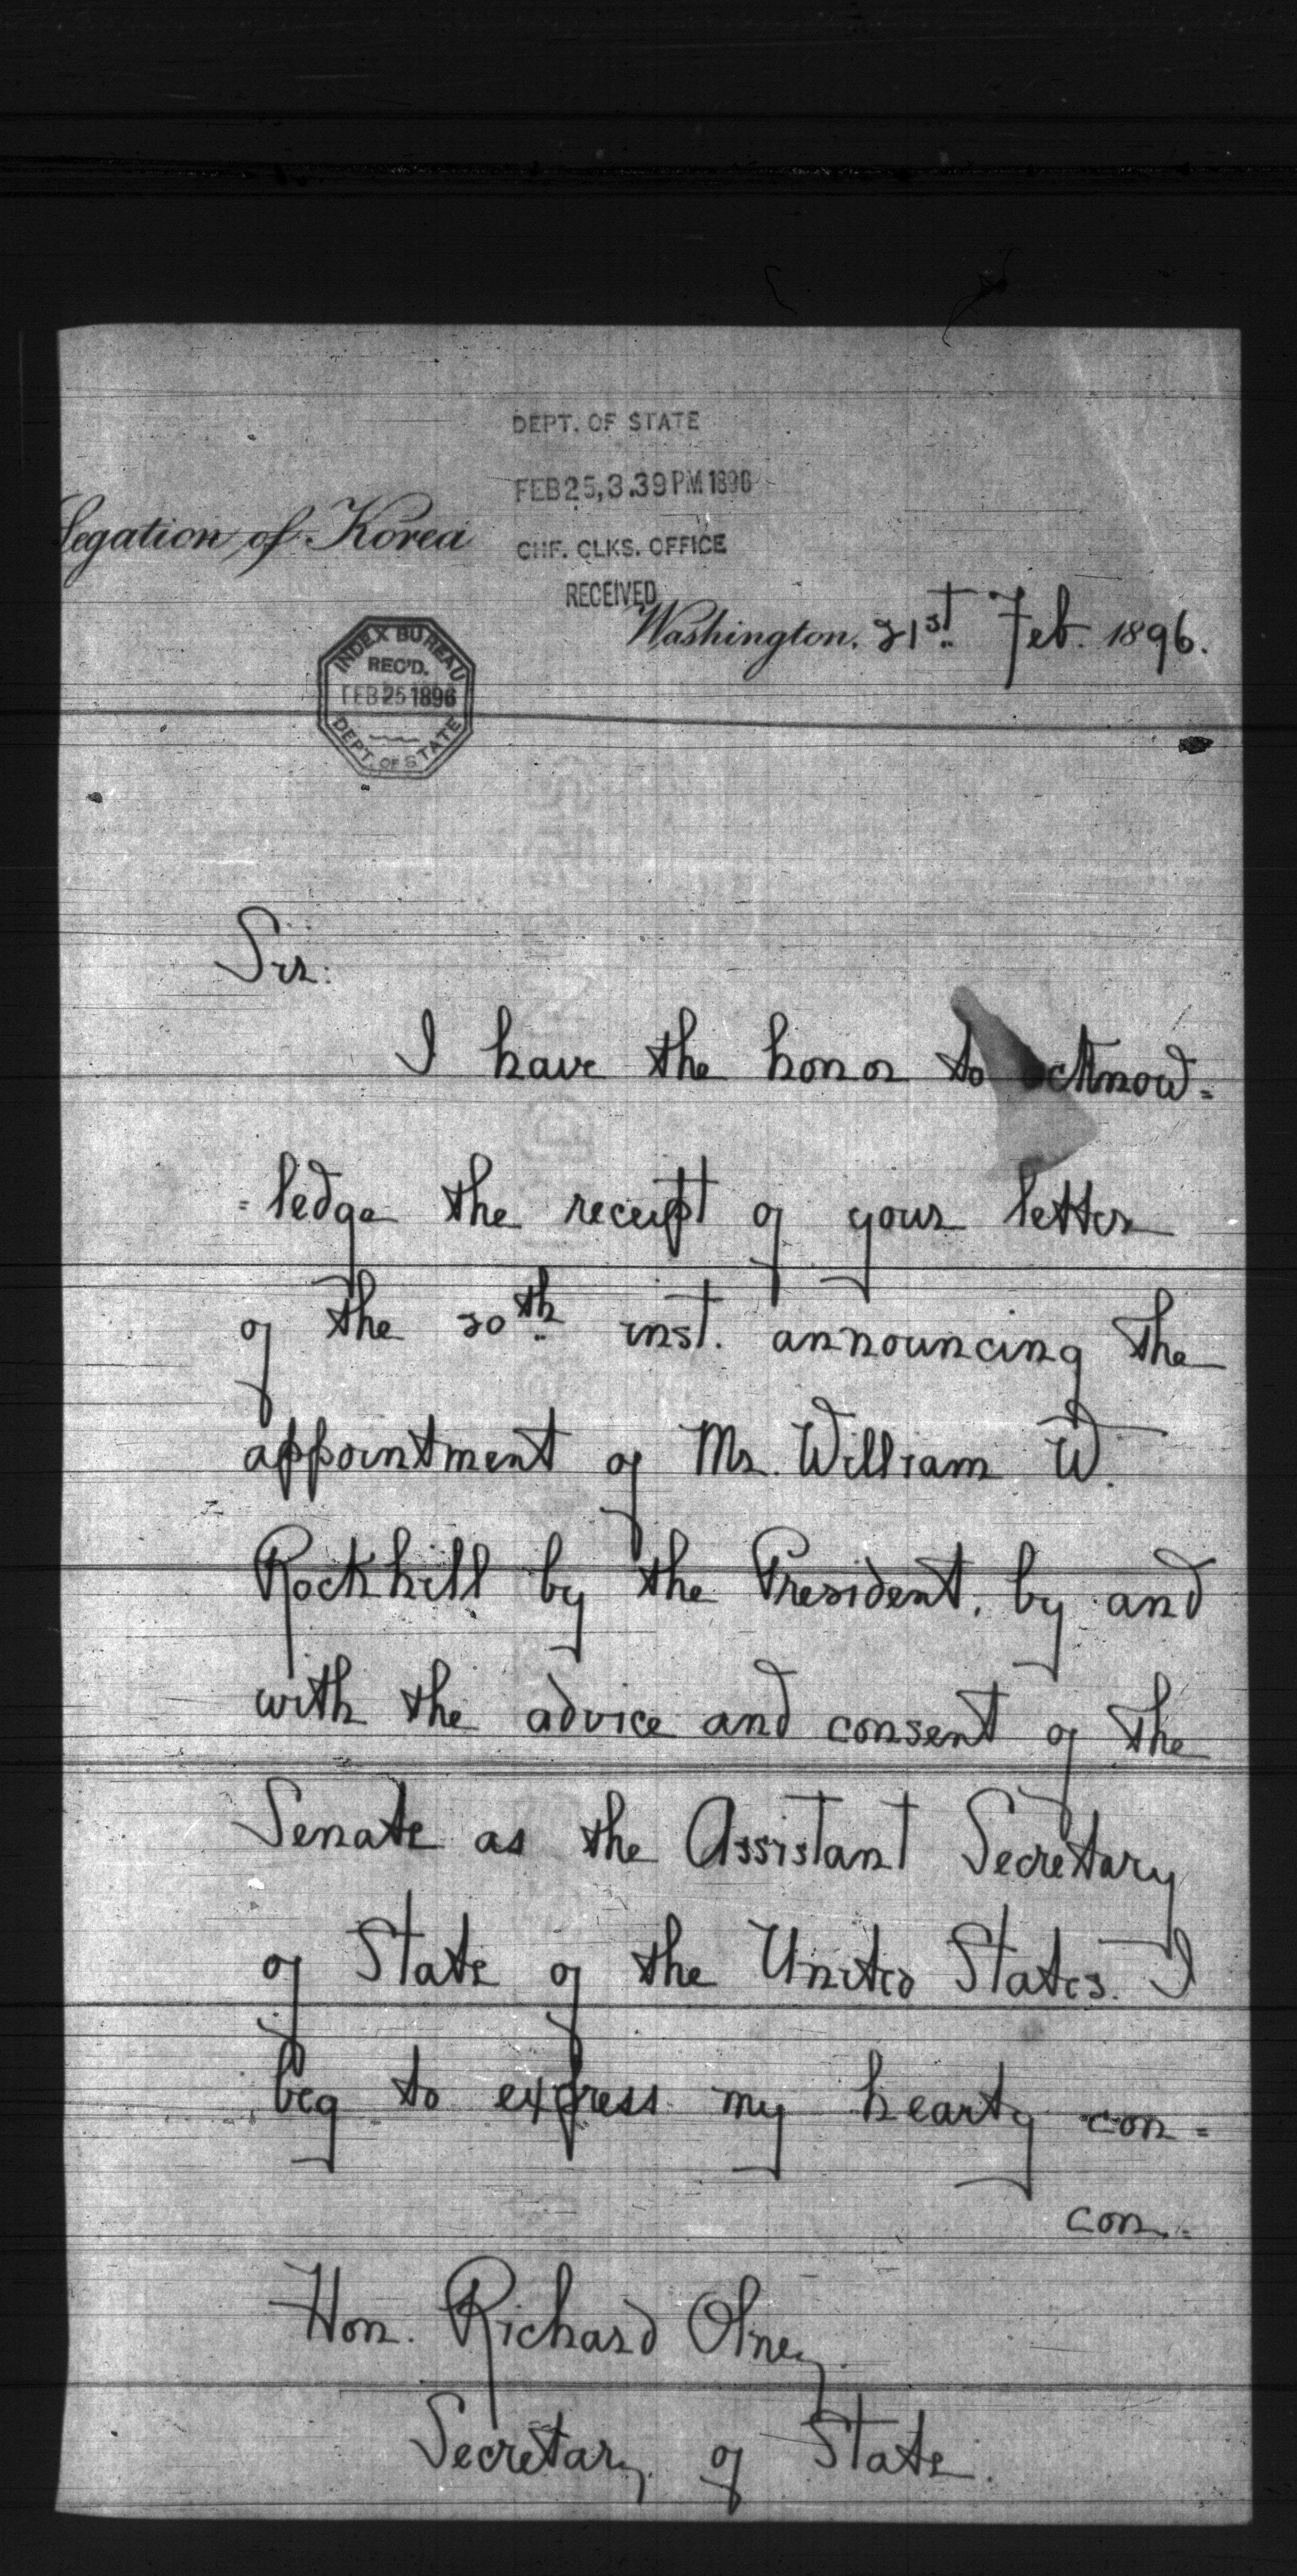 DEPT. OF STATE
FEB 25, 3.39 PM 1896
Legation of Korea
CHF. CLKS. OFFICE
RECEIVED
Washington, 21st Feb. 1896.
INDEX BUREAU
REC'D.
FEB 25 1896
DEPT. OF STATE
Sir:
I have the honor to acknow=
=ledge the receipt of your letter
of the 20th inst. announcing the
appointment of Mr. William W.
Rockhill by the President, by and
with the advice and consent of the
Senate as the Assistant Secretary
of State of the United States. I
beg to express my hearty con=
con=
Hon. Richard Olney.
Secretary of State.